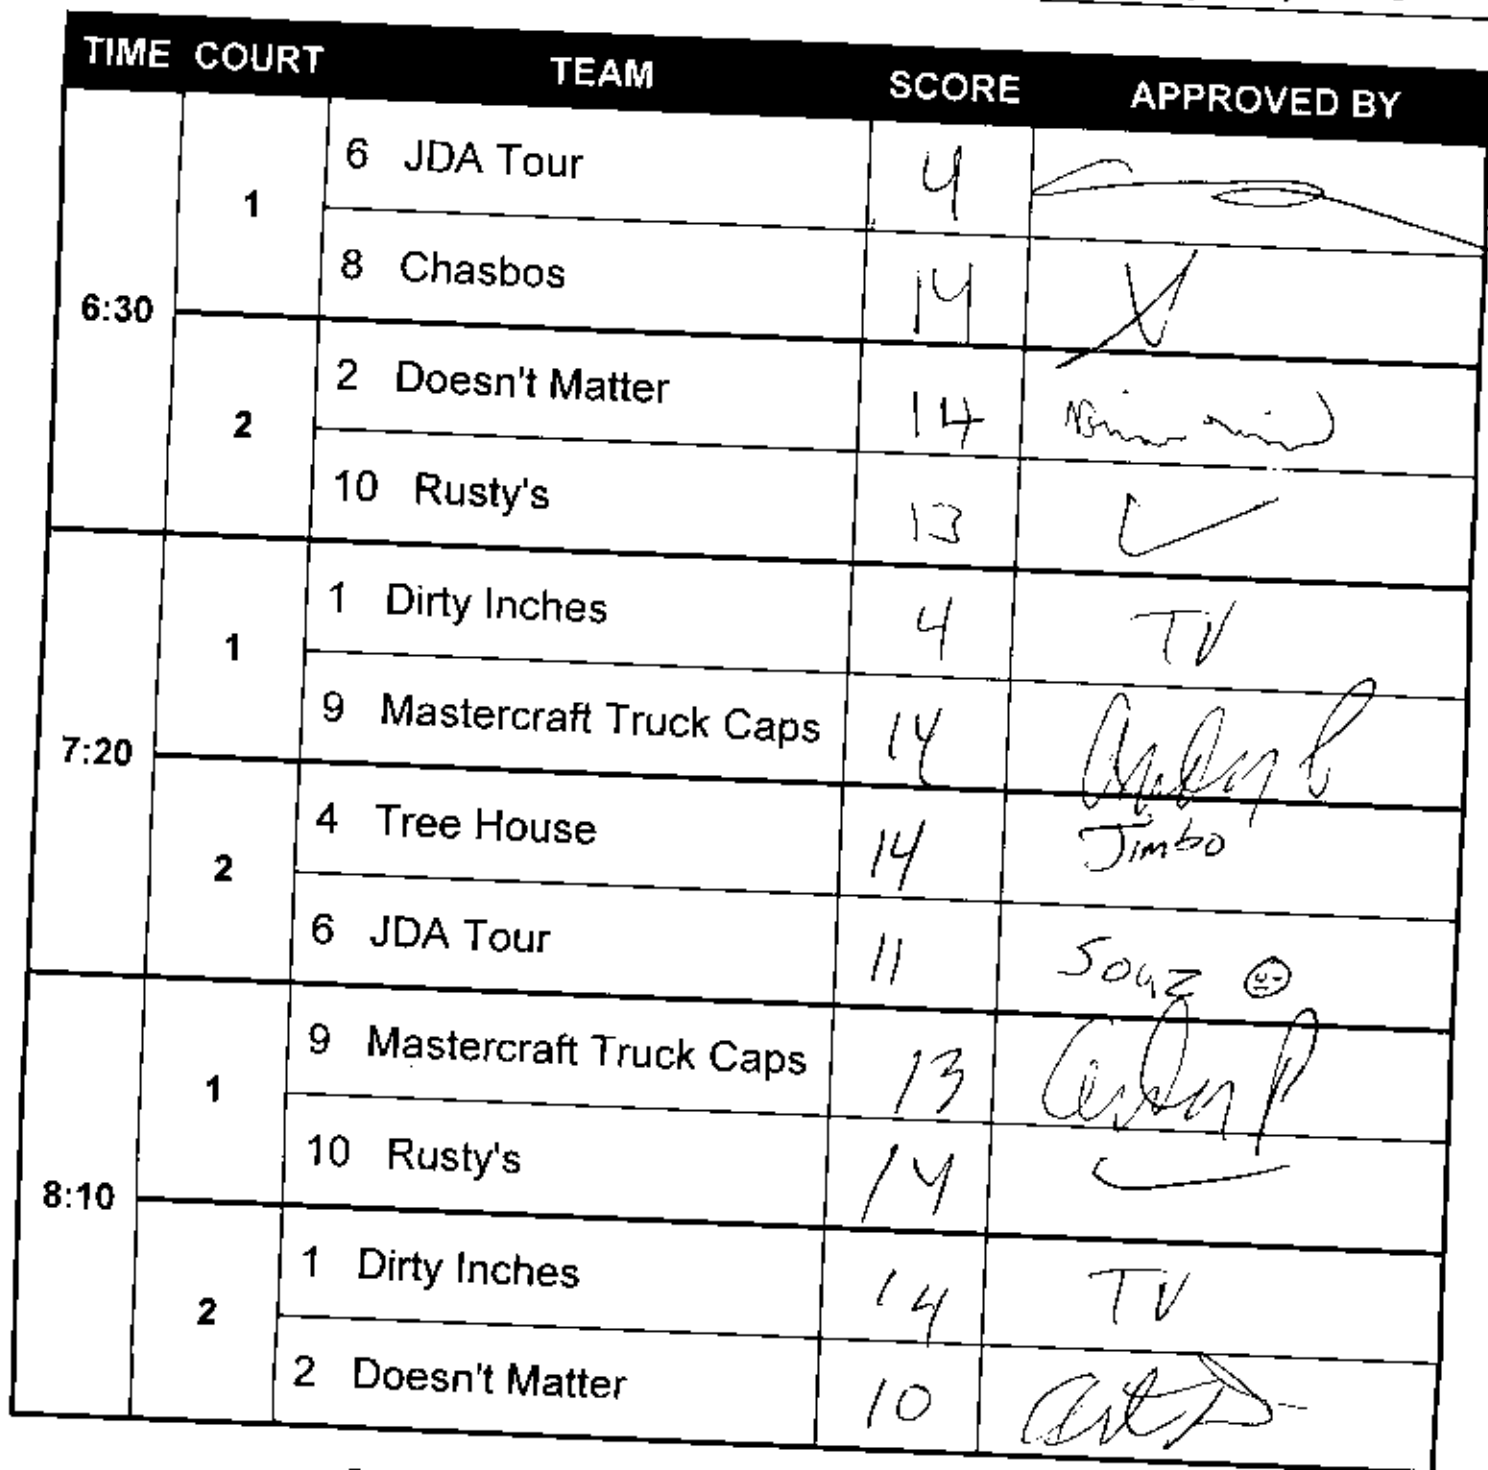 TIME COURT TEAM SCORE APPROVED BY
6:30
1
6 JDA Tour 4
8 Chasbos 14
2
2 Doesn't Matter 14
10 Rusty's 13
7:20
1
1 Dirty Inches 4 TV
9 Mastercraft Truck Caps 14
2
4 Tree House 14 Jimbo
6 JDA Tour 11
8:10
1
9 Mastercraft Truck Caps 13
10 Rusty's 14
2
1 Dirty Inches 14 TV
2 Doesn't Matter 10